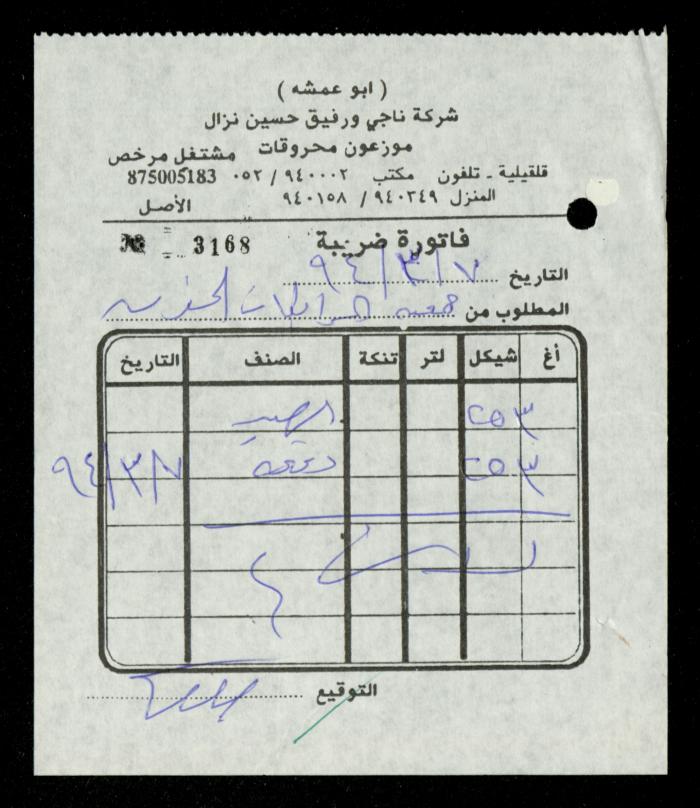 ( ابو عمشه )
شركة ناجي ورفيق حسين نزال
موزعون محروقات مشتغل مرخص
قلقيلية ـ تلفون مكتب ٩٤٠٠٠٢ / ٠٥٢ 875005183
المنزل ٩٤٠٣٤٩ / ٩٤٠١٥٨ الأصل
فاتورة ضريبة № 3168
التاريخ ٩٤/٣/٧
المطلوب من جمعية
أغ شيكل لتر تنكة الصنف التاريخ
٢٥٣ الرصيد
٢٥٣ دفعة ٩٤/٣/٧
التوقيع